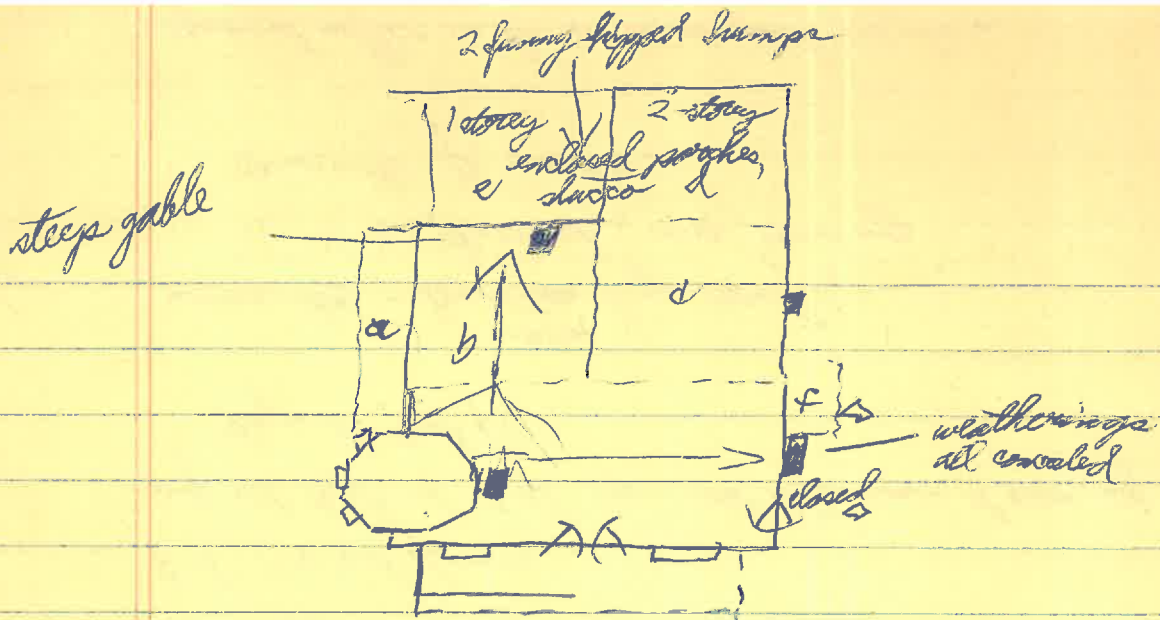 2 funny hipped humps
1 storey
2-storey
enclosed porches,
e stucco d
steep gable
a
b
d
f
weatherings
all concealed
closed